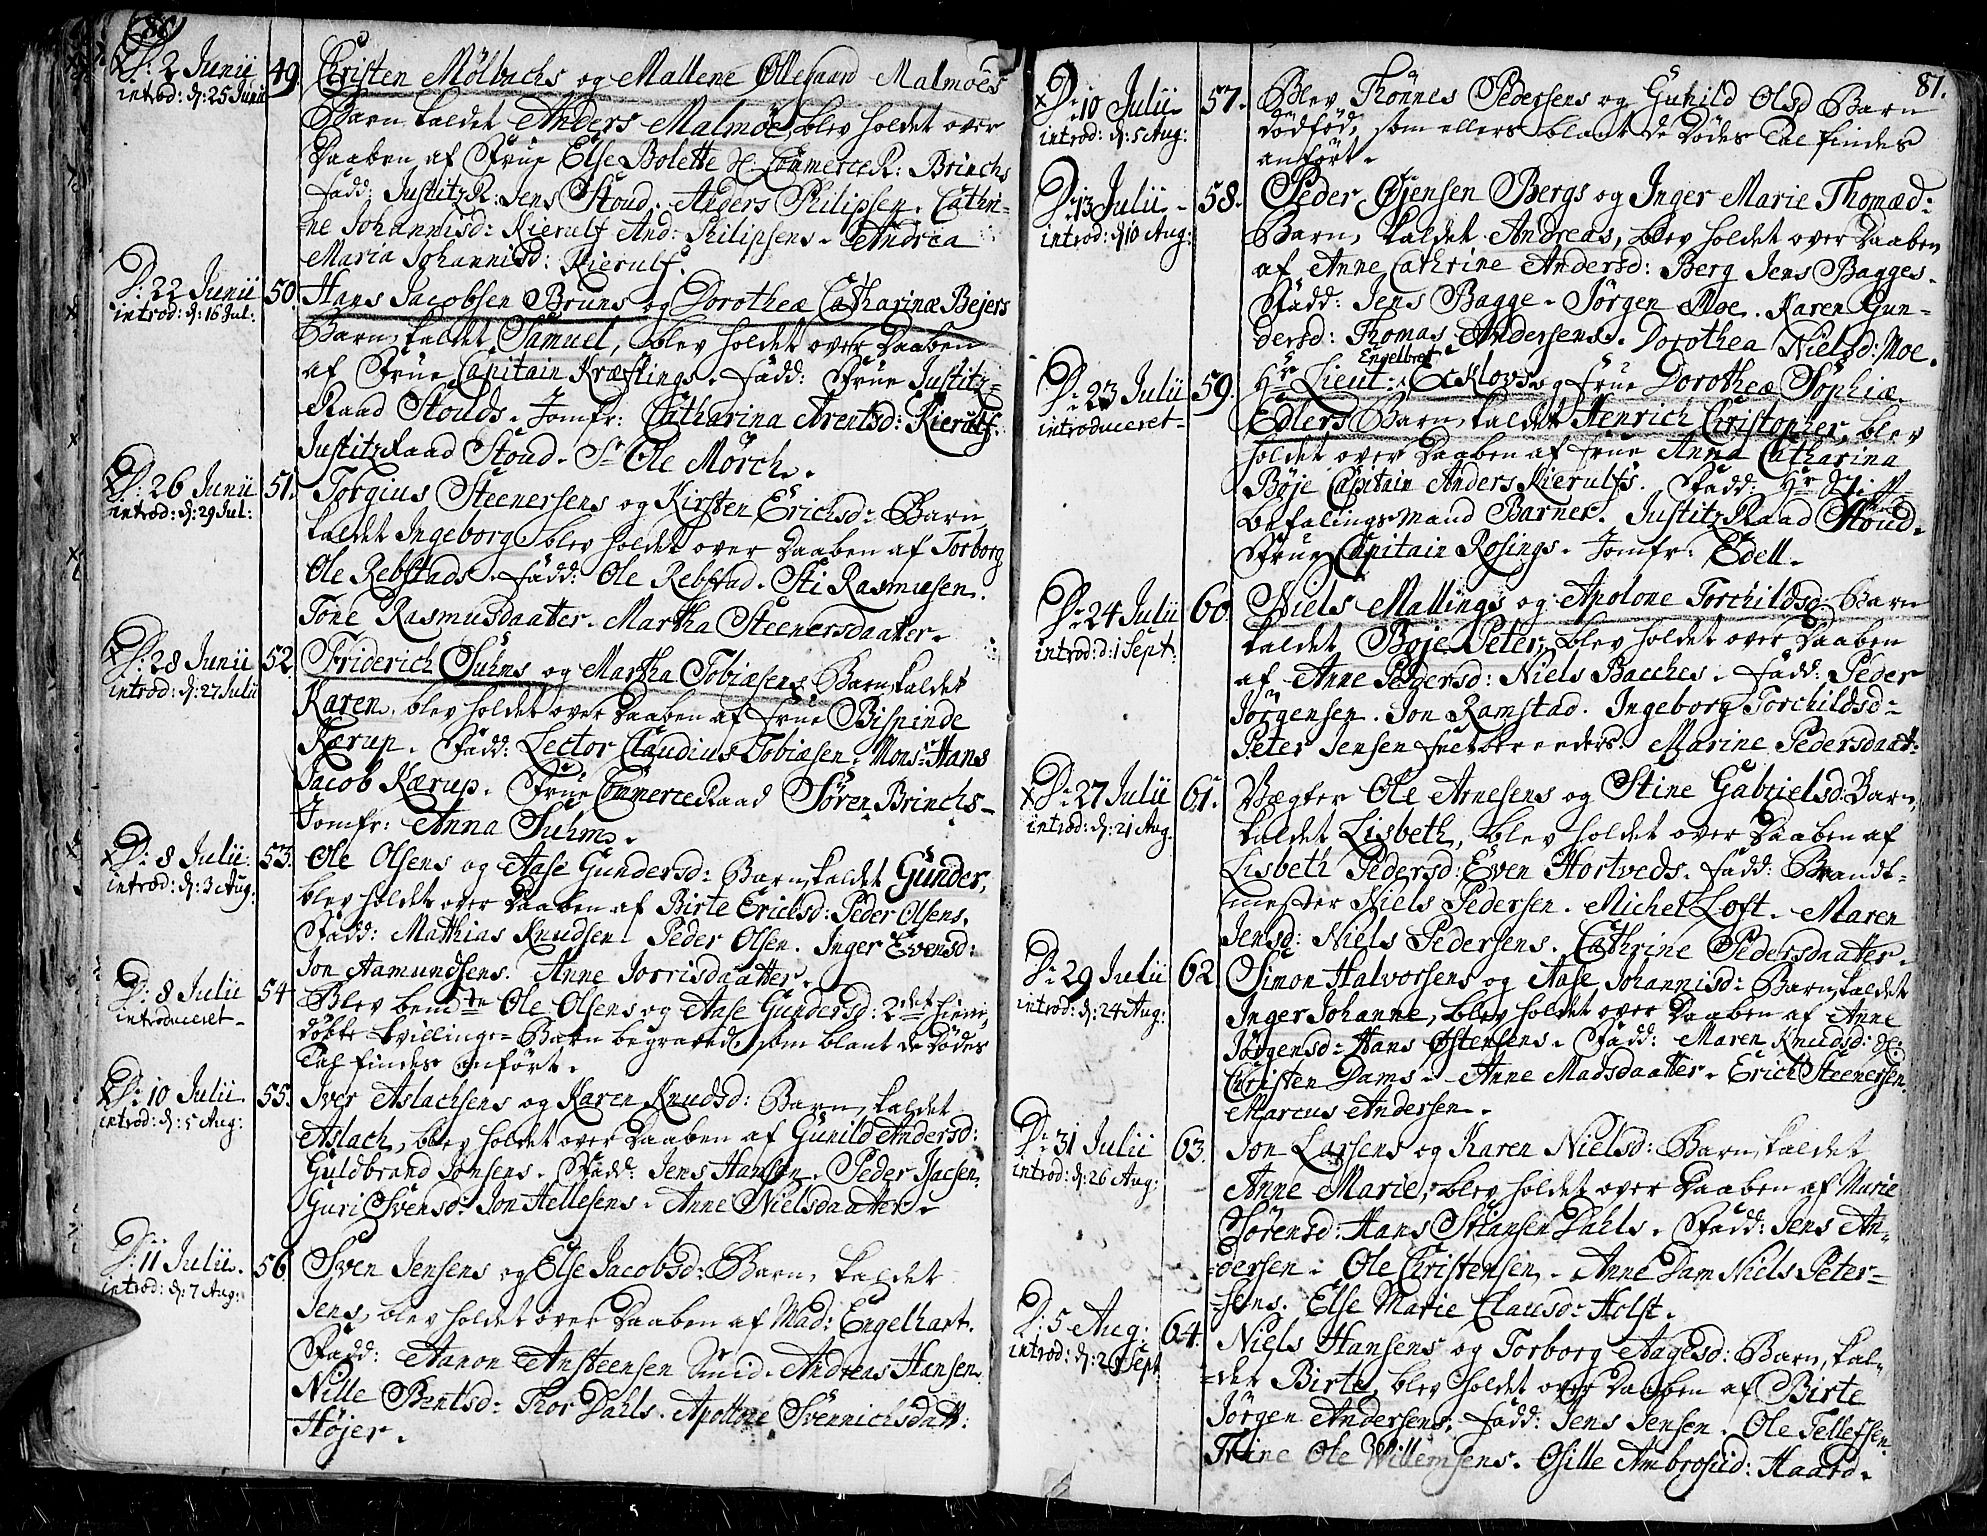 80
D: 2 Junii 49. Christen Mölbachs og Mallene Ollegaard Malmöes
introd: d: 25 Junii
Barn kaldet Anders Malmöe, blev holdet over
Daaben af Frue Else Bolette Sl. CommerceR: Brinchs
Fadd: JustitzR: Jens Stoud. Anders Philipsen. Cathri-
ne Johannisd: Kierulf And: Philipsens. Andrea
Maria Johannisd: Kierulf.
D: 22 Junii 50. Hans Jacobsen Bruns og Dorotheæ Catharinæ Bejers
introd: d: 16 Jul:
Barn, kaldet Samuel, blev holdet over Daaben
af Frue Capitain Kræftings. Fadd: Frue Justitz-
Raad Stouds. Jomfr: Catharina Arentsd: Kierulf.
JustitzRaad Stoud. Sr Ole Mörch.
D: 26 Junii 51. Torgius Steenersens og Kirsten Erichsd: Barn
introd: d: 29 Jul:
kaldet Ingeborg, blev holdet over Daaben af Torborg
Ole Rebstads. Fadd: Ole Rebstad. Sti Rasmusen.
Tone Rasmusdaatter. Martha Steenersdaatter.
D: 28 Junii 52. Friderich Suhms og Martha Tobiæsens Barn, kaldet
introd: d: 27 Julii
Karen, blev holdet over Daaben af Frue Bispinde
Kærup. Fadd: Lector Claudius Tobiæsen. Monsr Hans
Jacob Kærup. Frue CommerceRaad Sören Brinchs-
Jomfr: Anna Suhm.
D: 8 Julii 53. Ole Olsens og Aase Gundersd: Barn, kaldet Gunder,
introd: d: 3 Aug:
blev holdet over Daaben af Birte Ericksd: Peder Olsens.
Fadd: Matthias Knudsen. Peder Olsen. Inger Evensd:
Jon Aamundsens. Anne Jorrisdaatter.
D: 8 Julii 54 Blev bemdte Ole Olsens og Aase Gundersd: 2det hieme
introduceret
döbte Tvillinge-Barn begravet, som blant de Dödes
Tal findes anfört.
D: 10 Julii 55. Iver Aslachsens og Karen Knudsd: Barn, kaldet
introd: d: 5 Aug:
Aslach, blev holdet over Daaben af Gunild Andersd:
Guldbrand Jonsens. Fadd: Jens Hansen. Peder Isacsen.
Guri Svensd: Jon Hellesens. Anne Nielsdaatter.
D: 11 Julii. 56 Sven Jensens og Else Jacobsd: Barn, kaldet
introd: d: 7 Aug:
Jens, blev holdet over Daaben af Mad: Engelhart.
Fadd: Aanon Ansteensen Smid. Andreas Hansen.
Nille Bentsd: Thor Dahls. Apollone Svennichsdatt:
Höjer.
81.
D: 10 Julii 57. Blev Thönnes Pedersens og Gunild Olsd Barn
introd: d: 5 Aug:
dödfød, som ellers blant de Dödes Tal findes
anfört.
D: 13 Julii 58. Peder Öjensen Bergs og Inger Marie Thomæd:
introd: d: 10 Aug:
Barn, kaldet Andreas, blev holdet over Daaben
af Anne Cathrine Andersd: Berg Jens Bagges.
Fadd: Jens Bagge. Jörgen Moe. Karen Gun-
dersd: Thomas Andersens. Dorothea Nielsd: Moe.
D: 23 Julii 59. Hr Lieut: Engelbret Ecklovs og Frue Dorotheæ Sophiæ
introduceret
Edlers Barn, kaldet Henrich Christopher, blev
holdet over Daaben af Frue Anna Catharina
Böje Capitain Anders Kierulfs. Fadd: Hr Stift-
befalingsmand Barner. JustitzRaad Stoud.
Frue Capitain Rosings. Jomfr: Edell.
D: 24 Julii 60. Niels Mallings og Apolone Torchildsd: Barn
introd: d: 1 Sept:
kaldet Böje Peter, blev holdet over Daaben
af Anne Pedersd: Niels Bacches. Fadd: Peder
Jörgensen. Jon Ramstad. Ingeborg Torchildsd:
Peter Jensen. Marine Pedersdaat:
D: 27 Julii 61. Vægter Ole Arnesens og Stine Gabrielsd: Barn,
introd: d: 21 Aug.
kaldet Lisbeth, blev holdet over Daaben af
Lisbeth Pedersd: Even Hortveds. Fadd: Brandt-
mester Niels Pedersen. Michel Loft. Maren
Jensd: Niels Pedersens. Cathrine Pedersdaatter.
D: 29 Julii 62 Simon Halvorsens og Aase Johannisd: Barn, kaldet
introd: d: 24 Aug:
Inger Johanne, blev holdet over Daaben af Anne
Jörgensd: Hans Östensens. Fadd: Maren Knudsd: Sl.
Christen Dams. Anne Madsdaatter. Erich Steenersen
Marcus Andersen.
D: 31 Julii 63. Jon Larsens og Karen Nielsd: Barn, kaldet
introd: d: 26 Aug:
Anne Marie, blev holdet over Daaben af Marie
Sörensd: Hans Stiansen Dahls. Fadd: Jens An-
dersen. Ole Christensen. Anne Dam Niels Peter-
sens. Else Marie Clausd: Holst.
D: 5 Aug: 64. Niels Hansens og Torborg Aagesd: Barn, kal-
introd: d: Sept
det Birte, blev holdet over Daaben af Birte
Jörgen Andersens. Fadd: Jens Jensen. Ole Tellefsen
Trine Ole Willemsens. Osille Ambrosiid: Haard.